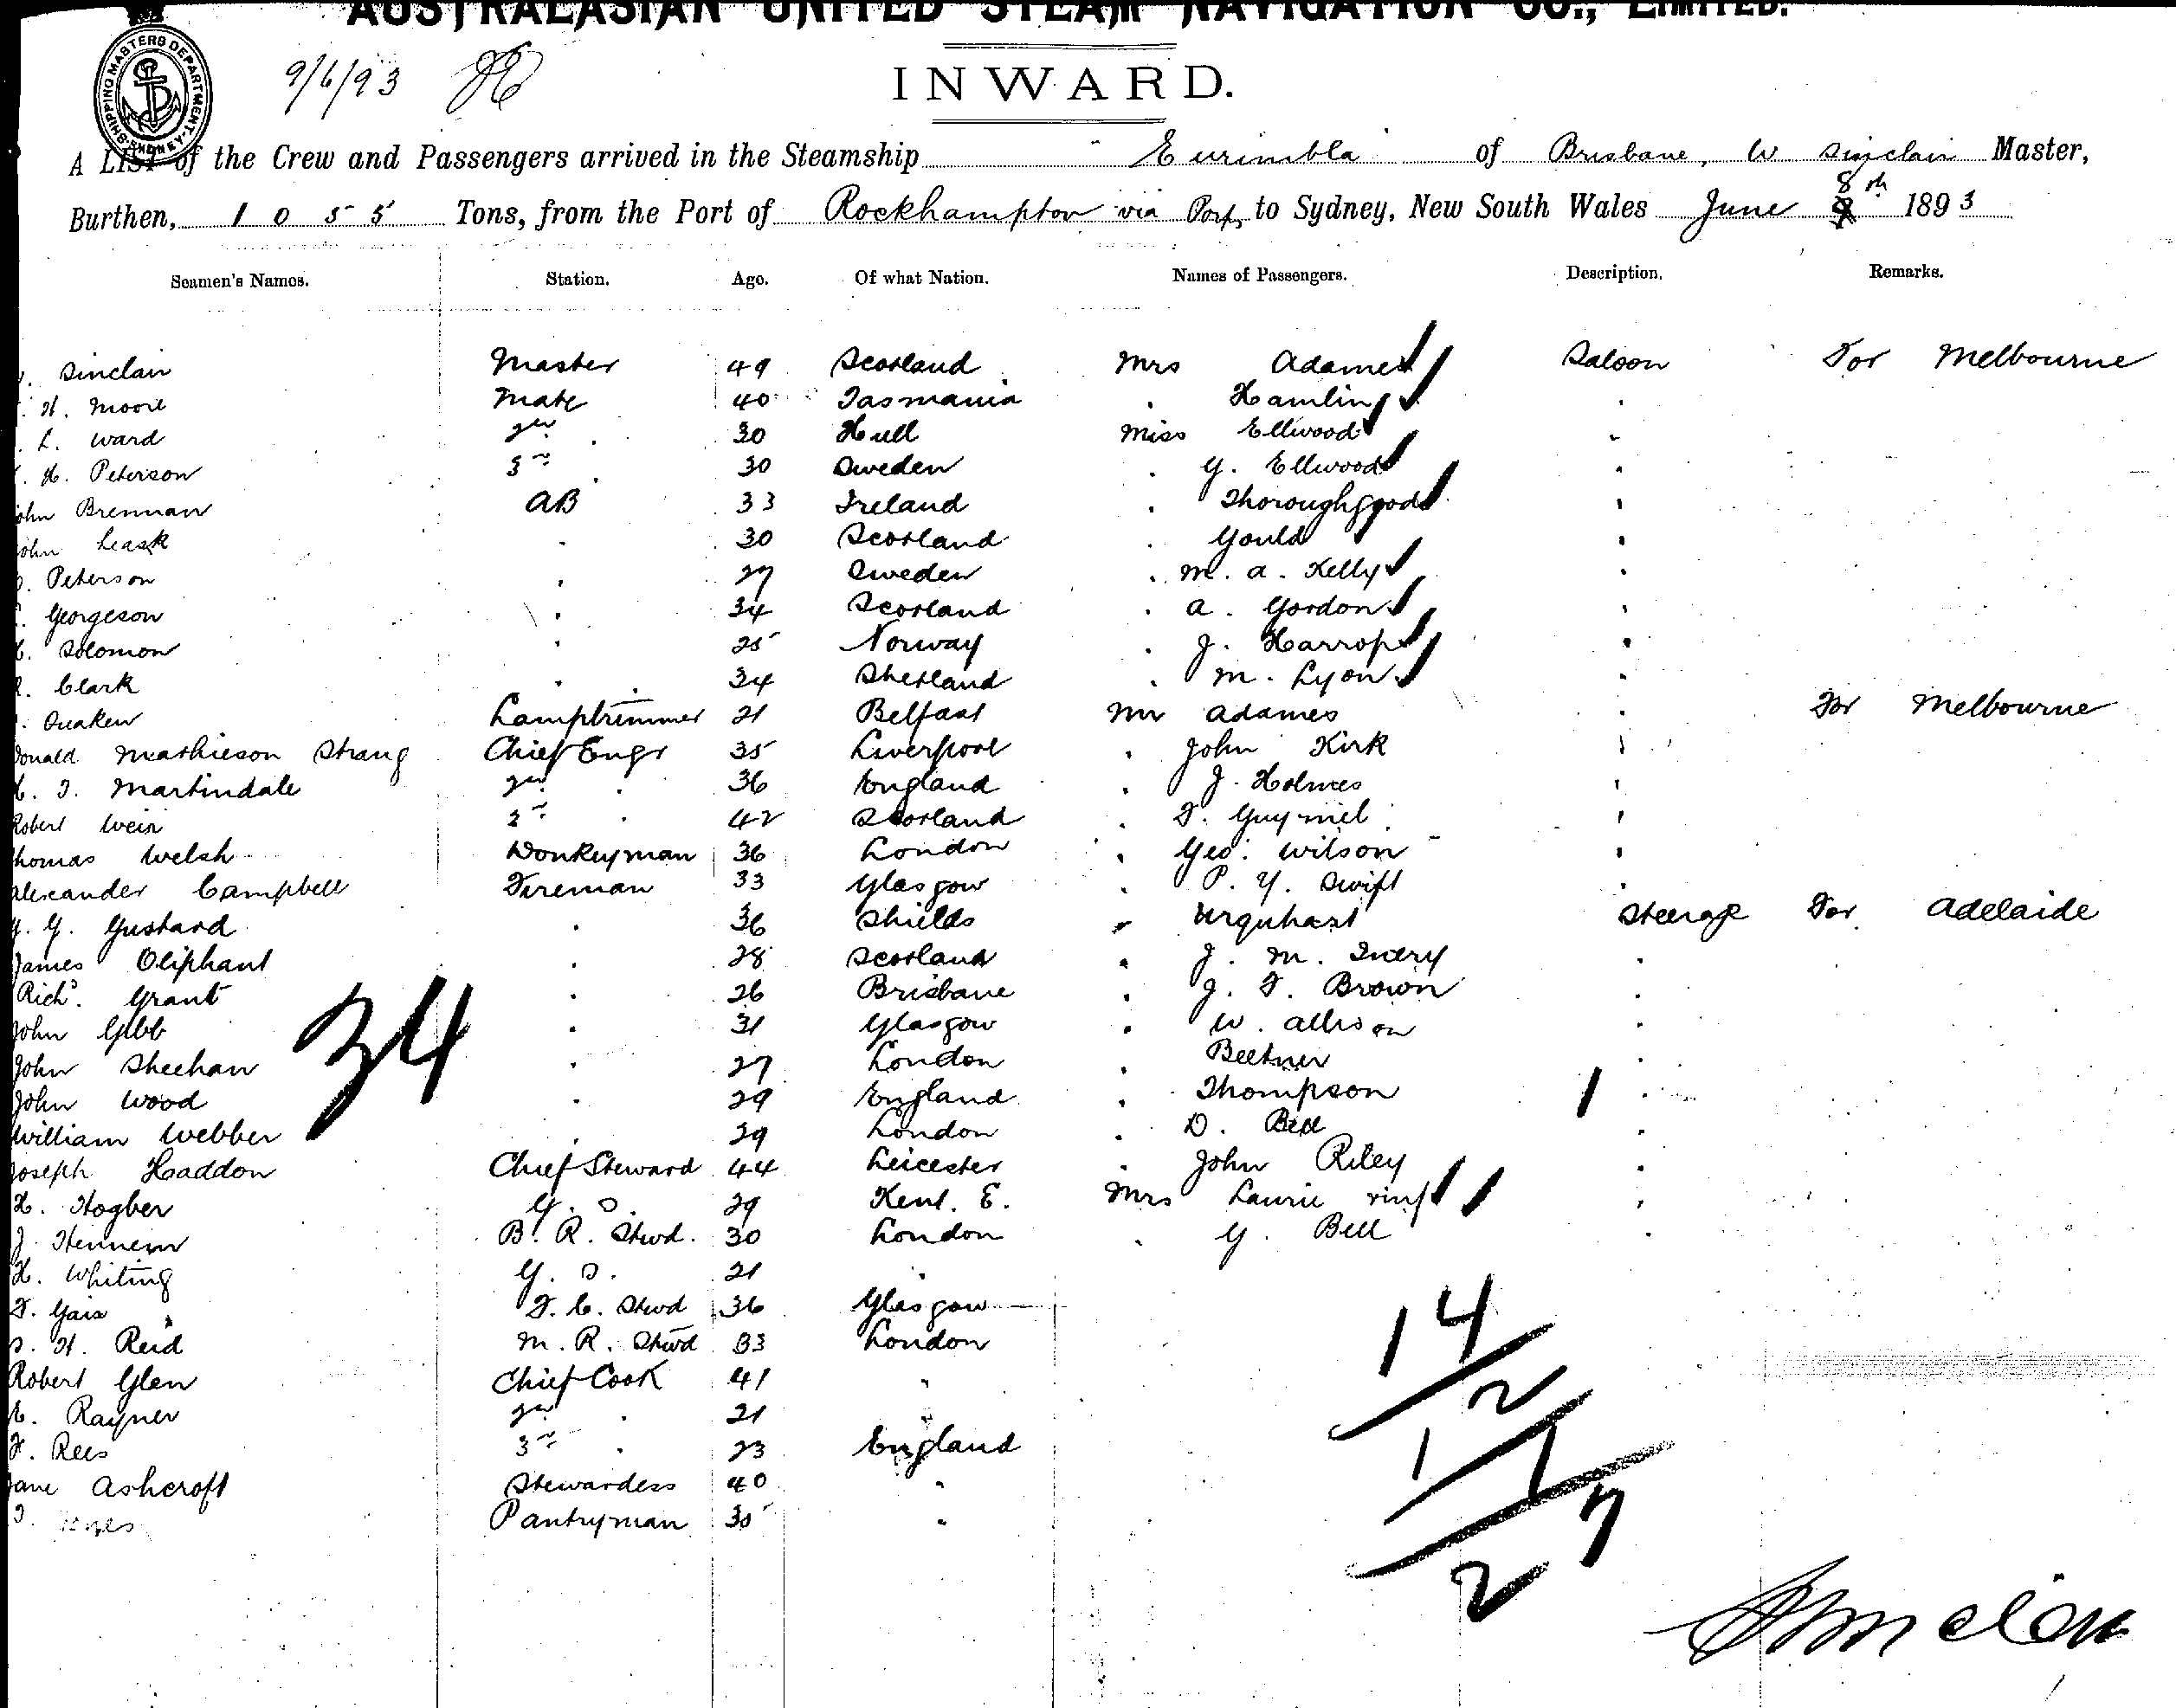 AUSTRALASIAN UNITED STEAM NAVIGATION CO., LIMITED.
SHIPPING MASTERS DEPARTMENT SYDNEY
9/6/93
INWARD.
A LIST of the Crew and Passengers arrived in the Steamship Eurimbla of Brisbane, W Sinclair Master,
Burthen, 1055 Tons, from the Port of Rockhampton via Ports to Sydney, New South Wales June 8th 1893
Seamen's Names. Station. Age. Of what Nation. Names of Passengers. Description. Remarks.
Sinclair Master 49 Scotland Mrs Adames Saloon For Melbourne
H. Moore Mate 40 Tasmania . Hamling .
L. Ward 2nd . 30 Hull Miss Ellwood .
H. Peterson 3rd . 30 Sweden . G. Ellwood .
John Brennan AB 33 Ireland . Thoroughgood .
John Leask . 30 Scotland . Gould .
Peterson . 27 Sweden . M. A. Kelly .
Georgeson . 34 Scotland . A. Gordon .
Solomon . 25 Norway . J. Harrop .
Clark . 34 Shetland . M. Lyon .
Quaken Lamptrimmer 21 Belfast Mr Adames . For Melbourne
Donald Mathieson Strang Chief Engr 35 Liverpool . John Kirk .
T. Martindale 2nd . 36 England . J. Holmes .
Robert Weir 3rd . 42 Scotland . F. Guymel .
Thomas Welsh Donkeyman 36 London . Geo. Wilson .
Alexander Campbell Fireman 33 Glasgow . P. Y. Swift .
G. Gustard . 36 Shields . Urquhart Steerage For Adelaide
James Oliphant . 28 Scotland . J. M. Ivery .
Richd. Grant . 26 Brisbane . J. F. Brown .
John Gibb . 31 Glasgow . W. Allison .
John Sheehan . 27 London . Beetner .
John Wood . 29 England . Thompson .
William Webber . 29 London . D. Bell .
Joseph Haddon Chief Steward 44 Leicester . John Riley .
H. Hogber G. S. 29 Kent. E. Mrs Laurie inft .
J. Hennem B. R. Stwd. 30 London . G. Bell .
H. Whiting G. S. 21 .
F. Gair F. C. Stwd 36 Glasgow
H. Reid M. R. Stwd 33 London
Robert Glen Chief Cook 41 "
Rayner 2nd . 21 "
F. Rees 3rd . 23 England
Jane Ashcroft Stewardess 40 "
Pantryman 35 "
34
14
2
1
1
27